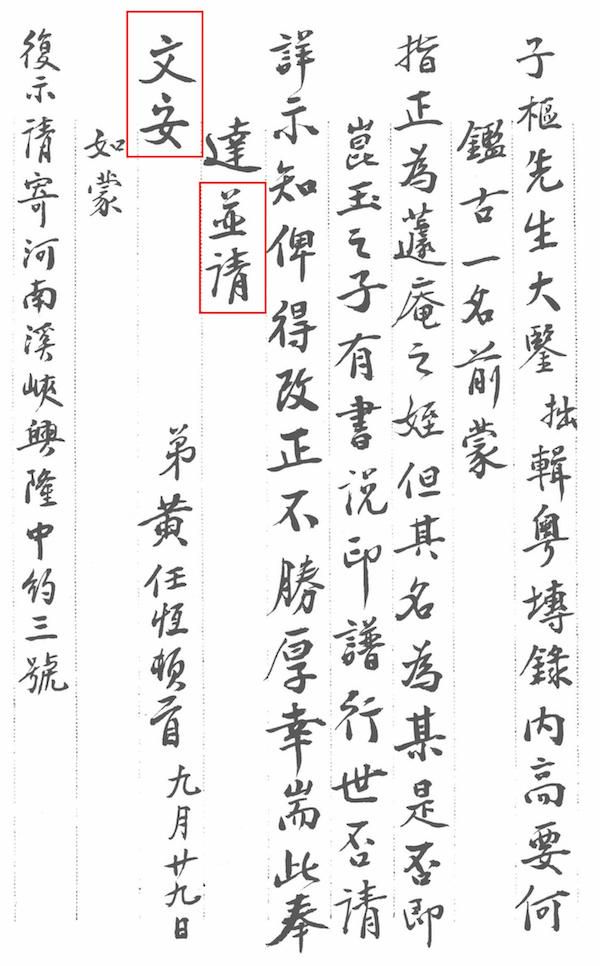 子樞先生大鑒 拙輯粵塼錄內高要何
鑑古一名前蒙
指正為蘧庵之姪但其名為某是否即
崑玉之子有書說印譜行世否請
詳示知俾得改正不勝厚幸耑此奉
達並请
文安
弟黃任恆頓首 九月廿九日
如蒙
復示請寄河南溪峽興隆中約三號